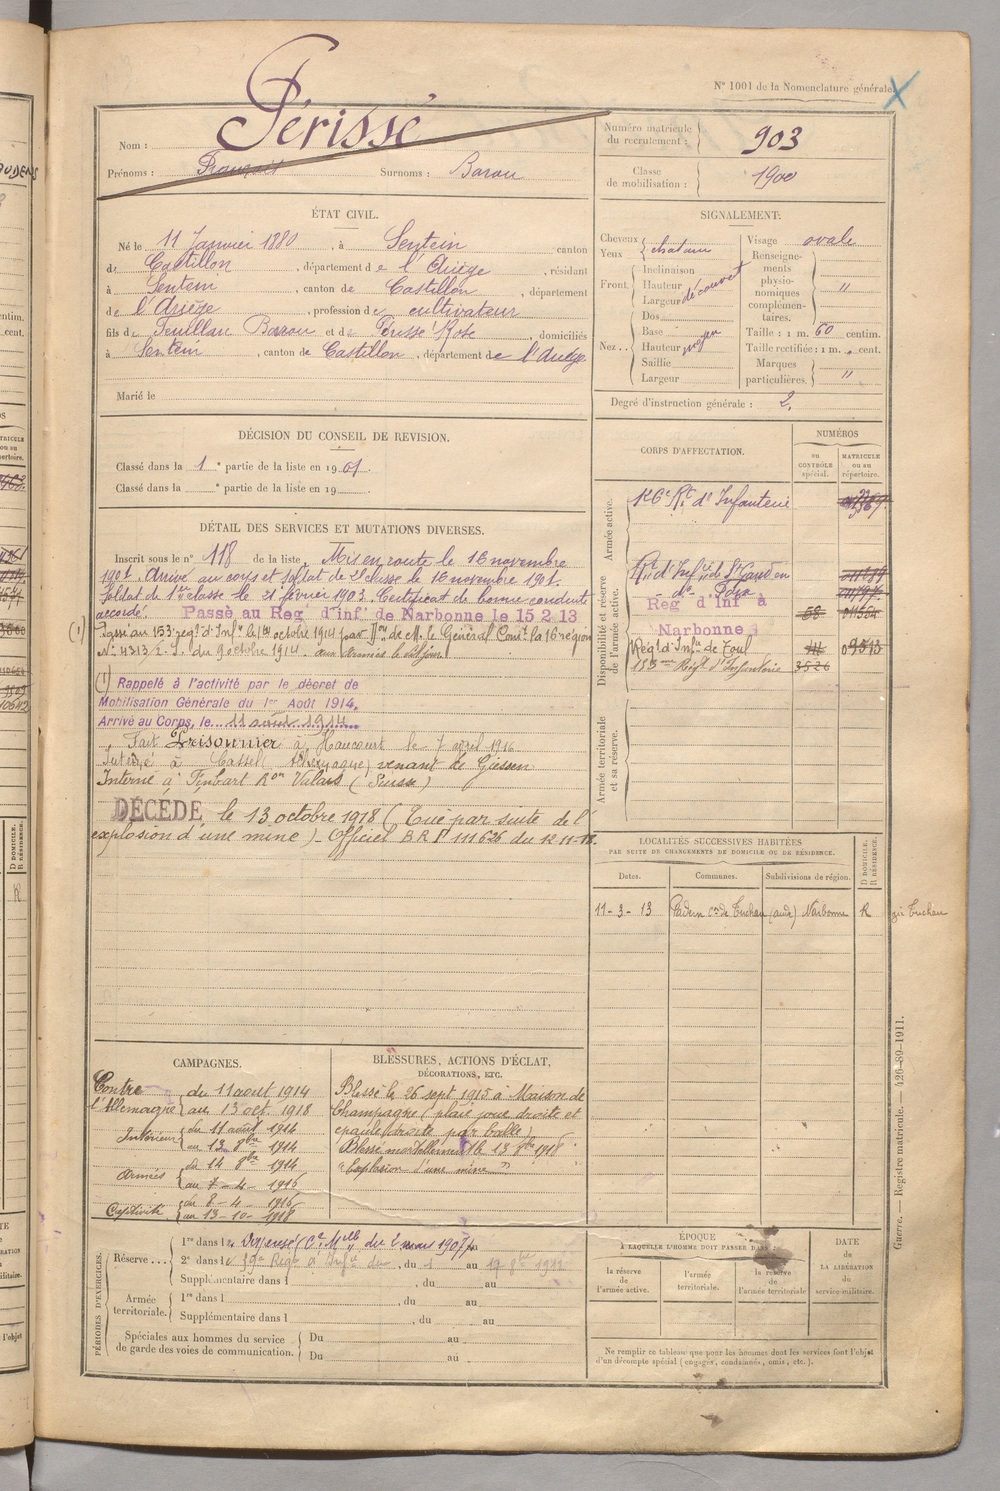 N° 1001 de la Nomenclature générale.
Nom : Périssé
Prénoms : François Surnoms : Barou
Numéro matricule du recrutement : 903
Classe de mobilisation : 1900
ÉTAT CIVIL.
Né le 11 Janvier 1880, à Sentein canton
de Castillon, département de l'Ariège, résidant
à Sentein, canton de Castillon, département
de l'Ariège, profession de cultivateur
fils de Feuillan Barou et de Périsse Rose domiciliés
à Sentein, canton de Castillon, département de l'Ariège
Marié le
SIGNALEMENT.
Cheveux
Yeux chatain
Front
Inclinaison
Hauteur
Largeur découvert
Nez
Dos
Base
Hauteur moyen
Saillie
Largeur
Visage ovale
Renseignements physionomiques complémentaires. "
Taille : 1 m. 60 centim.
Taille rectifiée : 1 m. cent.
Marques particulières "
Degré d'instruction générale : 2.
DÉCISION DU CONSEIL DE REVISION.
Classé dans la 1e partie de la liste en 1901.
Classé dans la e partie de la liste en 19
DÉTAIL DES SERVICES ET MUTATIONS DIVERSES.
Inscrit sous le n° 118 de la liste, Mis en route le 16 novembre
1901. Arrivé au corps et soldat de 2e classe le 16 novembre 1901.
Soldat de 1ère classe le 21 février 1903. Certificat de bonne conduite
accordé. Passé au Reg' d'inf' de Narbonne le 15 2 13
(1) Passé au 153e rég' d'Inf'e le 14 octobre 1914 par de M. le Général Com't la 16e région
N° 4313/2. du 9 octobre 1914. aux Armées le dit jour.
(1) Rappelé à l'activité par le décret de
Mobilisation Générale du 1er Août 1914.
Arrivé au Corps, le 11 août 1914
Fait Prisonnier à Haucourt le 7 avril 1916
Interné à Cassel (Allemagne) venant de Giessen
Interné à Finhart Valais (Suisse)
DÉCÉDÉ le 13 octobre 1918 (Tué par suite de l'
explosion d'une mine) - Officiel B.R.F 111626 du 12-11-18.
CORPS D'AFFECTATION.
NUMÉROS
au CONTRÔLE spécial.
MATRICULE ou au répertoire.
Armée active.
126e Rt d'Infanterie
Disponibilité et réserve de l'armée active.
Rt d'Inf'ie de St Gaudens
do Foix
Reg' d'Inf' à
Narbonne
58
Rég' d'Inf'ie de Toul 09513
153me Rég't d'Infanterie 3526
Armée territoriale et sa réserve.
LOCALITÉS SUCCESSIVES HABITÉES
PAR SUITE DE CHANGEMENTS DE DOMICILE OU DE RÉSIDENCE.
Dates. Communes. Subdivisions de région. D DOMICILE. R RÉSIDENCE.
11-3-13 Padern con de Tuchan (aude) Narbonne R Tuchan
CAMPAGNES.
Contre l'Allemagne du 11 aout 1914
au 13 oct. 1918
Intérieur du 11 août 1914
au 13 8bre 1914
Armées du 14 8bre 1914
au 7-4-1916
Captivité du 8-4-1916
au 13-10-1918
BLESSURES, ACTIONS D'ÉCLAT,
DÉCORATIONS, ETC.
Blessé le 26 sept 1915 à Maison de
Champagne (plaie joue droite et
épaule droite par balle)
Blessé mortellement le 13 8bre 1918
"Explosion d'une mine"
PÉRIODES D'EXERCICES.
Réserve
1re dans l Dispensé (Ce. Mlle du 2 mars 1907)
2e dans le 59e Régt d'Infie du au 17 8bre 1912
Supplémentaire dans l , du au
Armée territoriale.
1re dans l , du au
Supplémentaire dans l , du au
Spéciales aux hommes du service de garde des voies de communication.
Du au
Du au
ÉPOQUE
À LAQUELLE L'HOMME DOIT PASSER DANS
la réserve de l'armée active.
l'armée territoriale.
la réserve de l'armée territoriale
DATE DE LA LIBÉRATION du service militaire.
Ne remplir ce tableau que pour les hommes dont les services font l'objet
d'un décompte spécial (engagés, condamnés, omis, etc.).
Guerre. — Registre matricule. — 426-89-1911.